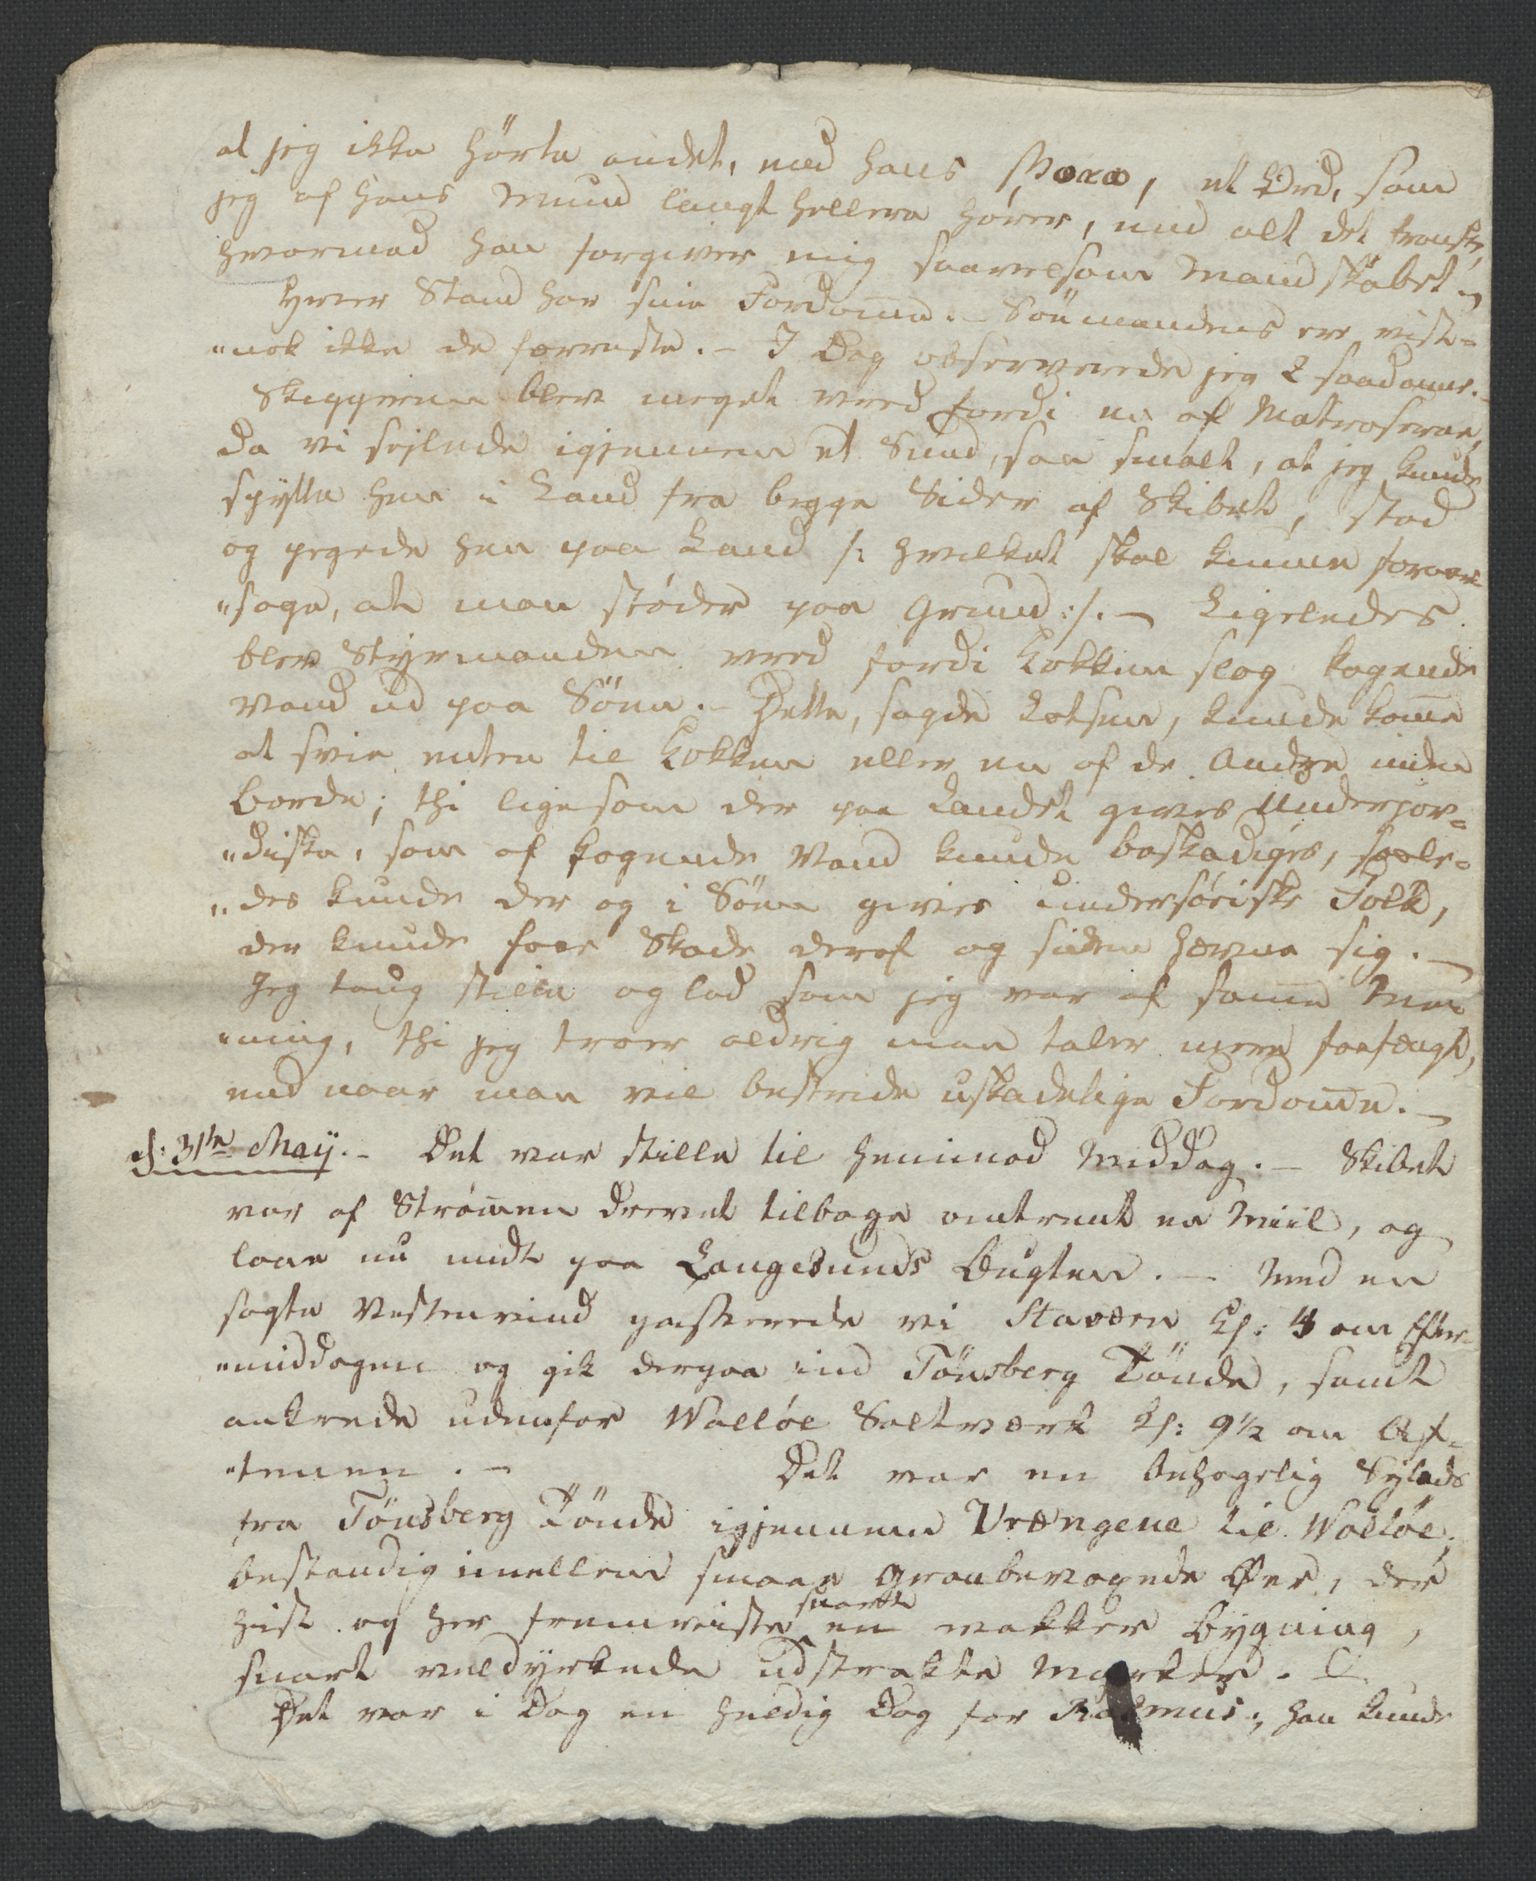 at jeg ikke hörte andet, end hans Paxo, et Ord, som
jeg af hans Mund langt hellere hörer, end alt det franske,
hvormed han forgiver mig saavelsom Mandskabet. –
Hver Stand har sine Fordomme. – Sömandens ere vist-
"nok ikke de færreste. – I Dag observerede jeg 2 saadanne. –
Skipperen blev meget vred fordi en af Matroserne,
da vi sejlede igjennem et Sund, saa smalt, at jeg kunde
spytte hen i Land fra begge Sider af Skibet, stod
og pegede hen paa Land /: hvilket skal kunne foraar-
"sage, at man støder paa Grund :/. – Ligeledes
blev Styrmanden vred fordi Kokken slog kogende
Vand ud paa Söen. – Dette, sagde Lotsen, kunde komme
at svie enten til Kokken eller en af de Andre inden
Borde; thi ligesom der paa Landet gives Underjor-
"diske, som af kogende Vand kunde beskadiges, saale-
"des kunde der og i Söen gives undersöiske Folk,
der kunde faae Skade deraf og siden hævne sig. –
Jeg taug stille og lod som jeg var af samme Mee
"ning, thi jeg troer aldrig man taler mere forfængt,
end naar man vil bestride uskadelige Fordomme. –
d: 31te May. – Det var stille til henimod Middag. – Skibet
var af Strømmen drevet tilbage omtrent en Miil, og
laae nu midt paa Langesunds Bugten. – Med en
sagte Vestenvind passerede vi Stavern Kl: 4 om Efter-
"middagen og gik derpaa ind Tönsberg Tönde, samt
ankrede udenfor Walløe Saltværk Kl: 9½ om Af-
"tenen. – Det var en behagelig Sejlads
fra Tönsberg Tönde igjennem Vrængene til Walløe,
bestandig imellem smaae Graubevoxede Øer, der
hist og her fremviste snart en vakker Bygning,
snart veldyrkede udstrakte Marker. –
Det var i Dag en heldig Dag for Rasmus, han kunde